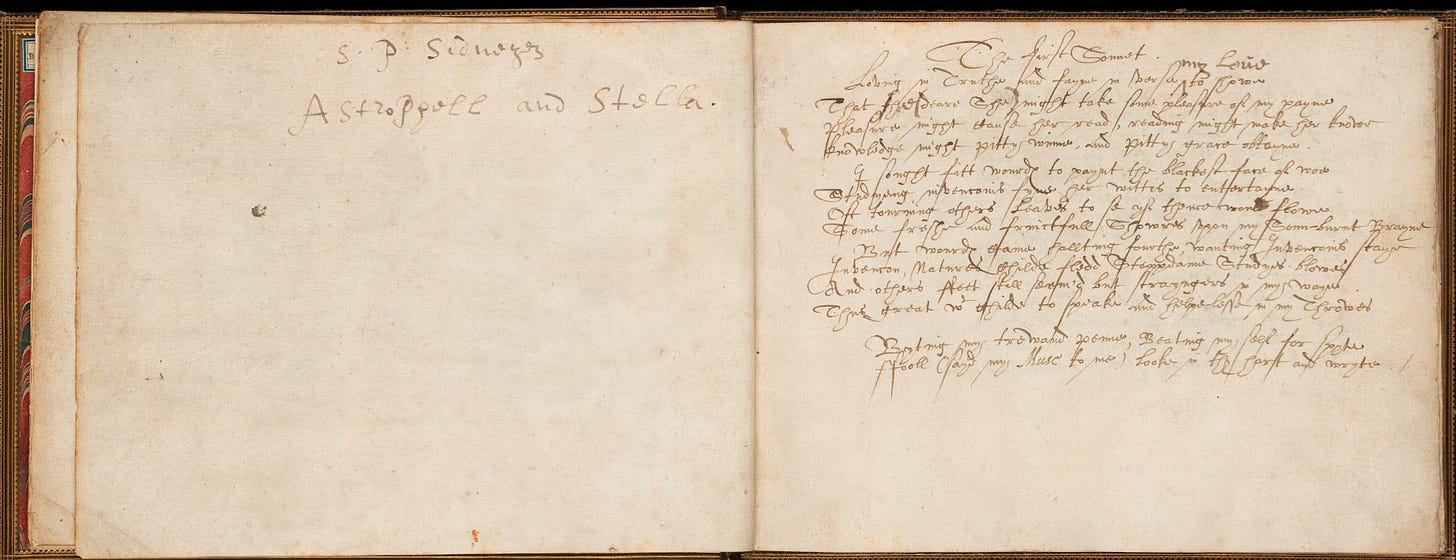 S. P. Sidneyes
Astrophell and Stella.
The first Sonnet
Loving in Truthe and fayne in verse my Love to showe
That she (deare She) might take some pleasure of my payne
Pleasure might cause her read, reading might make her knowe
Knowledge might pittye winne, and pittye grace obtayne.
I sought fitt wourdes to paynt the blackest face of woe
Studyeng invencouns fyne her wittes to enttertayne.
Oft tourning others Leaves to se yf thence would flowe
Some freshe and fruictfull Showres upon my Soun-burnt Brayne
But wourdes Came hallting fourthe, wanting Invencouns staye
Invencon, Natures Childe fledd Steppdame Studyes blowes
And others ffeet still seem'd but strayngers in my waye.
Thus great wt Childe to speake and helpelesse in my Throwes
Byting my trewand penne, Beating my self for spyte
ffooll (sayd my Muse to me) looke in thy hart and wryte.